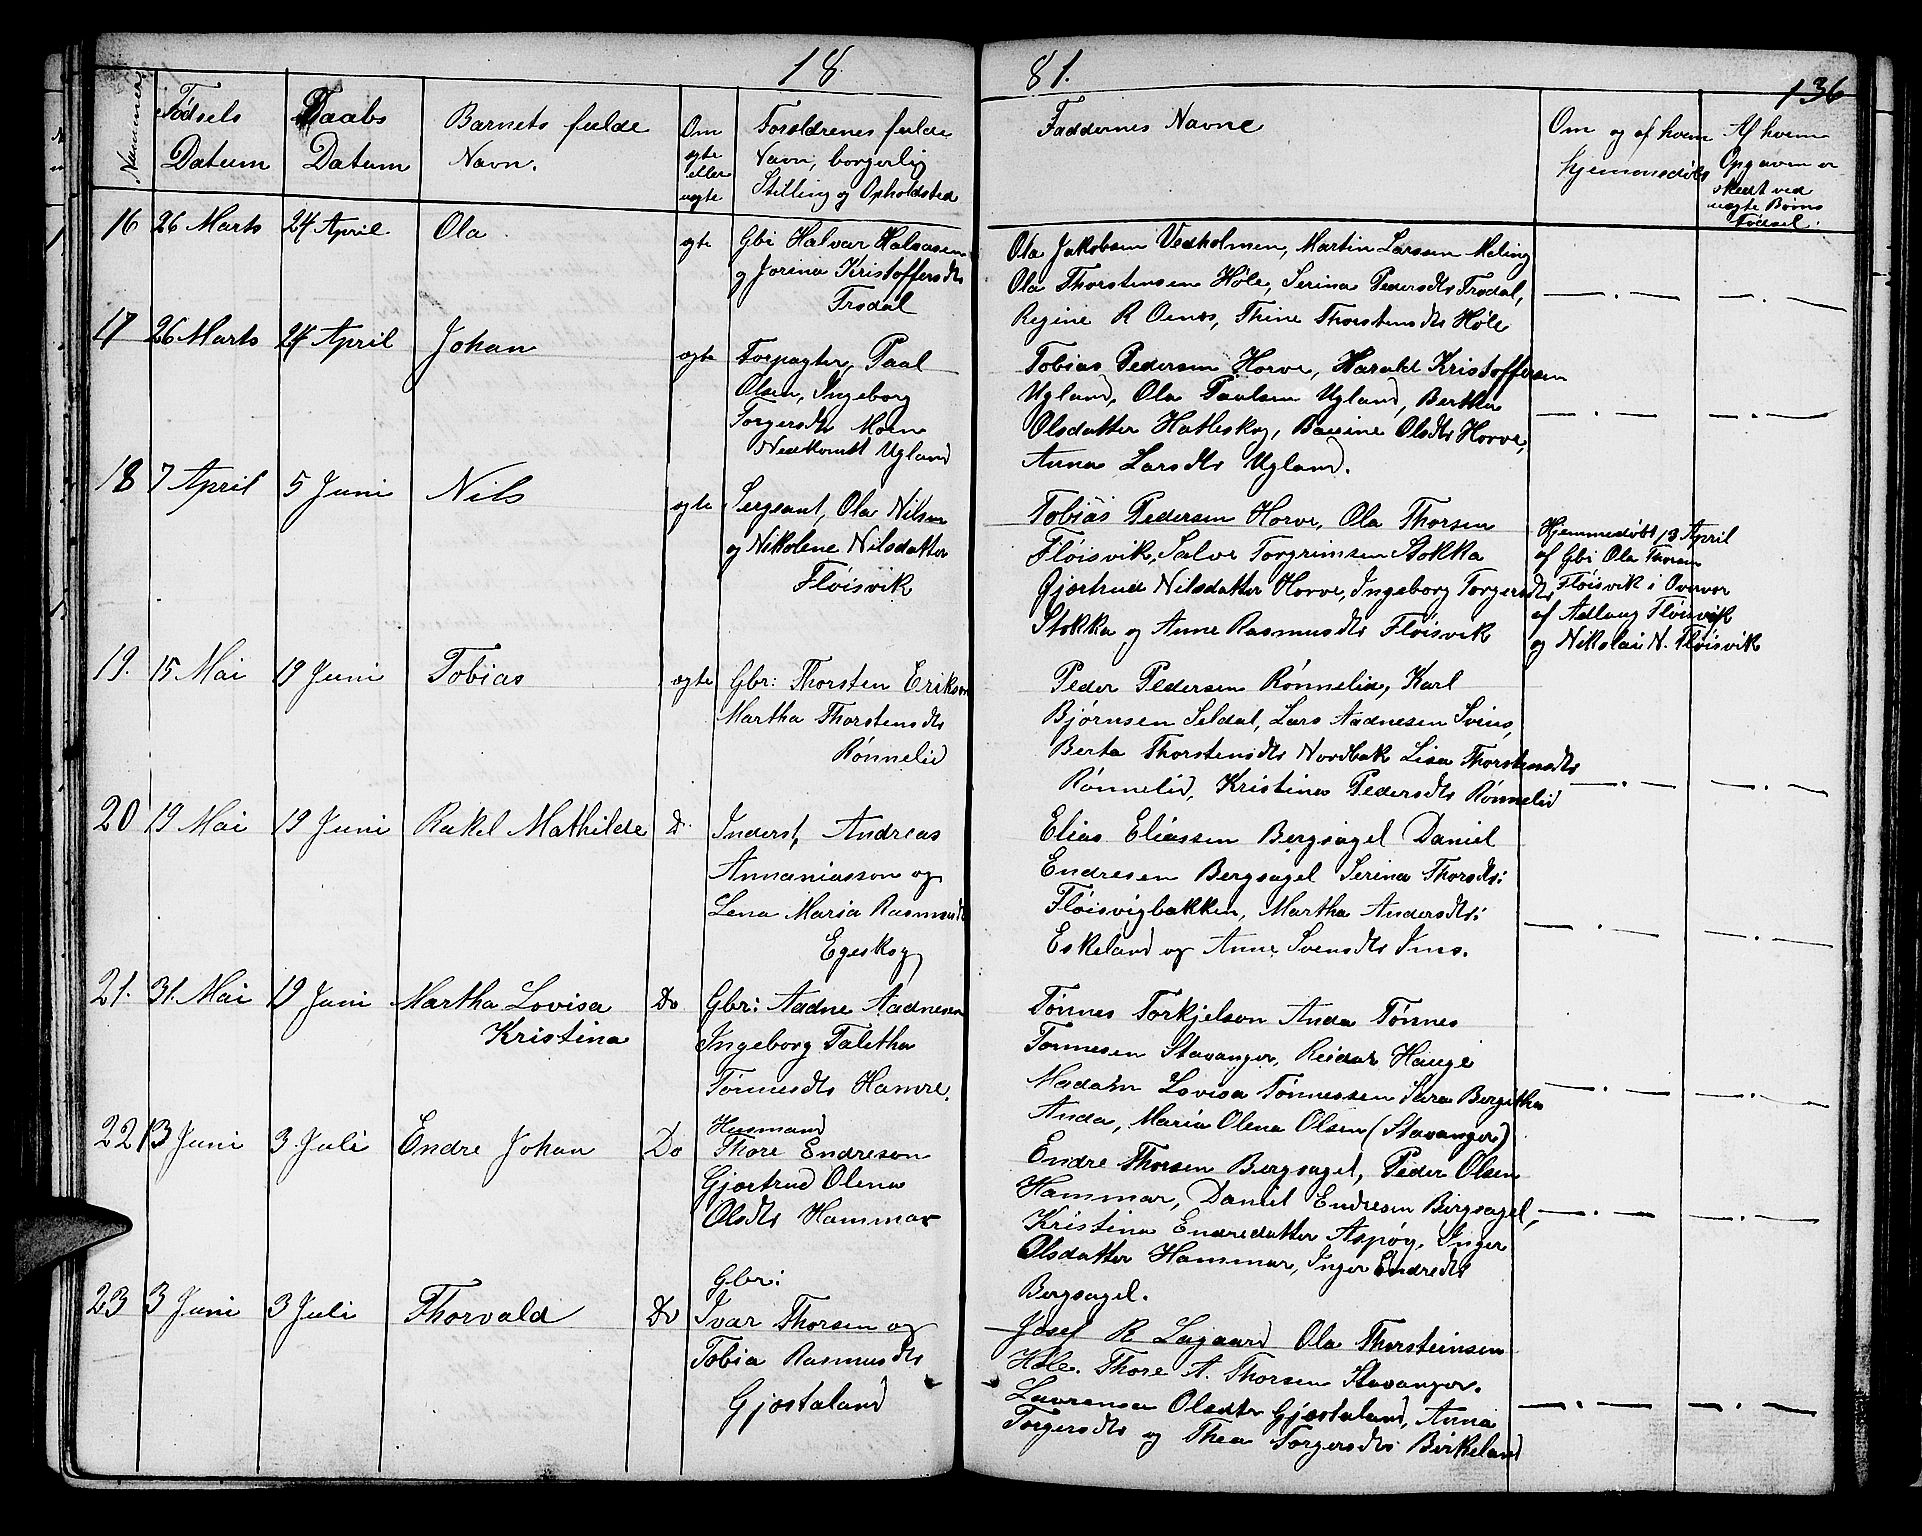 18
81.
136
Nummer
Fødsels Datum
Daabs Datum
Barnets fulde Navn.
Om ægte eller uægte
Forældrenes fulde Navn, borgerlig Stilling og Opholdsted
Faddernes Navne
Om og af hvem hjemmedøbt
Af hvem Opgaven er skeet ved uægte Børns Fødsel.
16 26 Marts 24 April Ola ægte
Gbr Halvar Halvasen
og Jorina Kristoffersdtr
Frodal
Ola Jakobsen Vedholmen, Martin Larsen Meling
Ola Thorstensen Høle, Serina Pedersdtr Frodal,
Regine R Oenes, Thine Thorstensdtr Høle
17 26 Marts 24 April Johan ægte
Forpagter, Paal
Olsen, Ingeborg
Torgersdtr Moen
Nedkomt Ugland
Tobias Pedersen Horve, Harald Kristoffersen
Ugland, Ola Paulsen Ugland, Berthe
Olsdatter Hatleskog, Bauine Olsdtr Horve,
Anna Larsdtr Ugland.
18 7 April 5 Juni Nils ægte
Sergeant, Ola Nilsen
og Nikolene Nilsdatter
Fløisvik
Tobias Pedersen Horve, Ola Thorsen
Fløisvik, Salve Torgrimsen Stokka
Gjertrud Nilsdatter Horve, Ingeborg Torgersdtr
Stokka og Anne Rasmusdtr Fløisvik
Hjemmedøbt 13 April
af Gbr Ola Thorsen
Fløisvik i Overvær
af Adlaug Fløisvik
og Nikolai N. Fløisvik
19. 15 Mai 19 Juni Tobias ægte
Gbr: Thorsten Eriksen
Martha Thorstensdtr
Rønnelid
Peder Pedersen Rønnelid, Karl
Bjørnsen Seldal, Lars Aadnesen Svins,
Berta Thorstensdtr Nordbak Lisa Thorstensdtr
Rønnelid, Kristina Pedersdtr Rønnelid
20 19 Mai 19 Juni Rakel Mathilde D.
Inderst, Andreas
Annaniasson og
Lena Maria Rasmusdtr
Egeskog
Elias Eliassen Bergsagel Daniel
Endresen Bergsagel Serina Thorsdtr:
Fløisvigbakken, Martha Andersdtr:
Eskeland og Anne Svensdtr Ims.
21. 31. Mai 19 Juni Martha Lovisa Do
Kristina
Gbr: Aadne Aadnesen
Ingeborg Talitha
Tønnesdtr Hamre.
Tønnes Torkjelson Anda Tønnes
Tønnesen Stavanger, Reidar Hauge
Madam Lovisa Tønnessen Sara Bergitha
Anda, Maria Olena Olsen (Stavanger)
22 13 Juni 3 Juli Endre Johan Do
Husmand
Thore Endreson
Gjertrud Olena
Olsdtr Hammar
Endre Thorsen Bergsagel, Peder Olsen
Hammar, Daniel Endresen Bergsagel,
Kristina Endredatter Aspøy, Inger
Olsdatter Hammar, Inger Endredtr
Bergsagel.
23 3 Juni 3 Juli Thorvald Do
Gbr:
Ivar Thorsen og
Tobia Rasmusdtr
Gjøstaland
Josef R Lagaard Ola Thorsteinsen
Høle. Thore A. Thorsen Stavanger.
Laurensa Olsdtr Gjøstaland, Anna
Torgersdtr og Thea Torgersdtr Birkeland